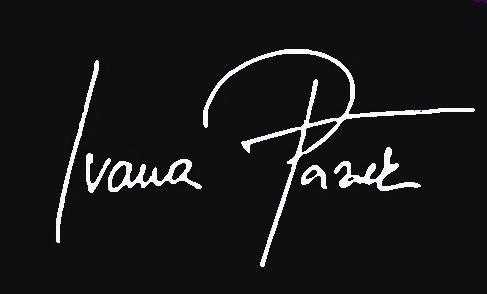 Ivana Pazek